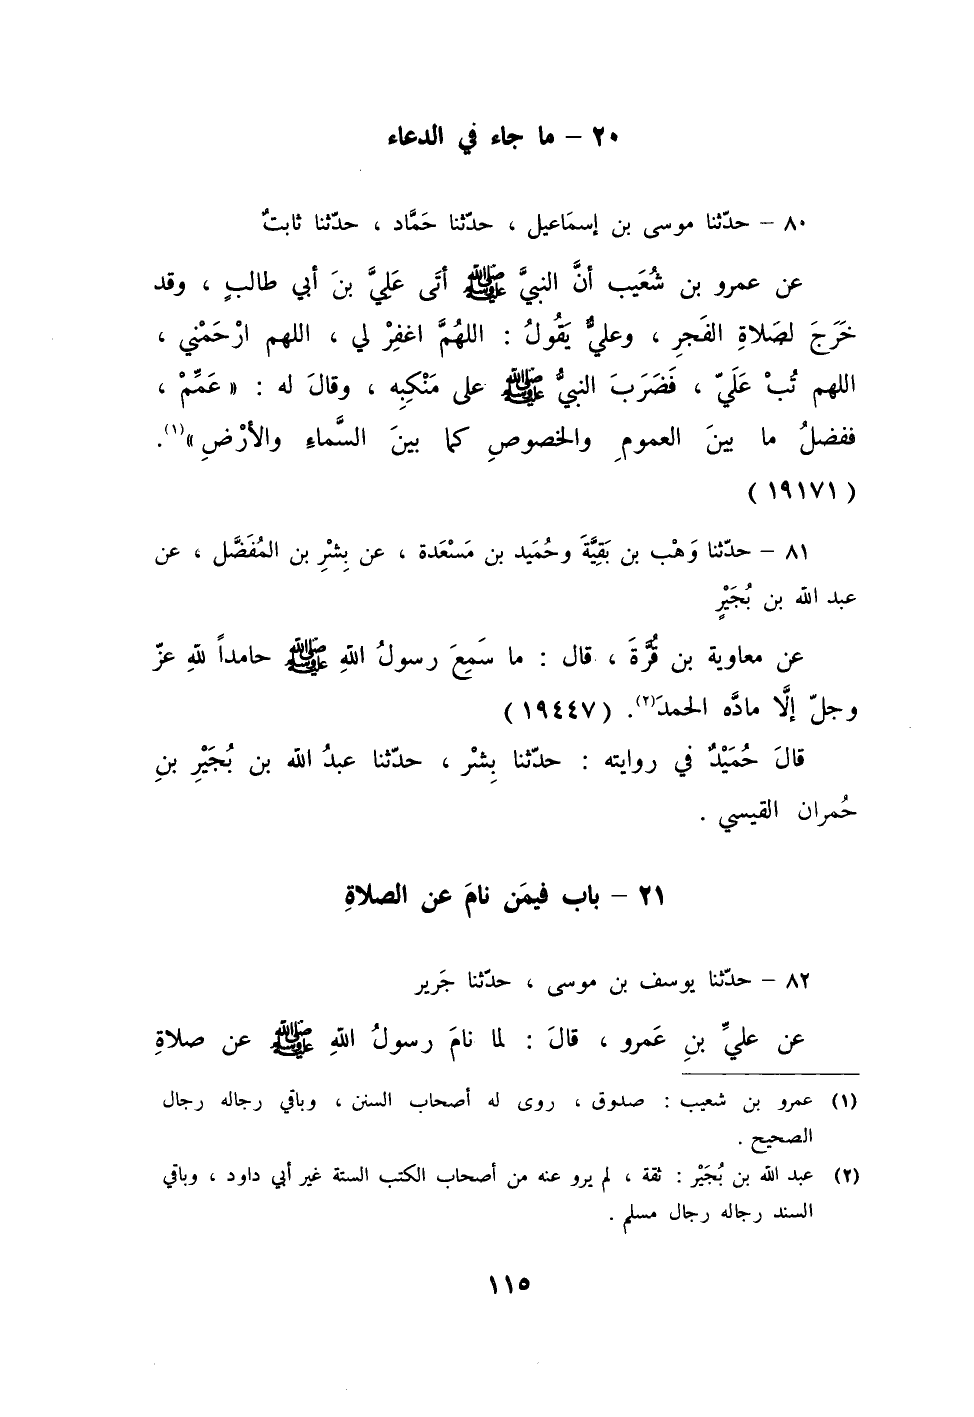 ٢٠ – ما جاء في الدعاء
٨٠ – حدّثنا موسى بن إسمَاعيل ، حدّثنا حَمَّاد ، حدّثنا ثابتٌ
عن عمرو بن شُعَيب أنَّ النبيَّ ﷺ أتَى عَلِيَّ بنَ أبي طالبٍ ، وقد
خَرَجَ لصَلاةِ الفَجرِ ، وعليٌّ يَقُولُ : اللهُمَّ اغفِرْ لي ، اللهم ارْحَمْني ،
اللهم تُبْ عَلَيّ ، فَضَرَبَ النبيُّ ﷺ على مَنْكِبِه ، وقالَ له : « عَمِّمْ ،
ففضلُ ما بينَ العمومِ والخصوصِ كما بينَ السَّماءِ والأرْضِ »(١).
( ١٩١٧١ )
٨١ – حدّثنا وَهْب بن بَقِيَّةَ وحُمَيد بن مَسْعَدة ، عن بِشْرِ بن المُفَضَّل ، عن
عبد الله بن بُجَيْرٍ
عن معاوية بن قُرَّةَ ، قال : ما سَمِعَ رسولُ اللهِ ﷺ حامداً للهِ عزّ
وجلّ إلَّا مادَّه الحمدَ(٢). ( ١٩٤٤٧ )
قالَ حُمَيْدٌ في روايته : حدّثنا بِشْر ، حدّثنا عبدُ الله بن بُجَيْرِ بنِ
حُمران القيسي .
٢١ – باب فيمَن نامَ عن الصلاةِ
٨٢ – حدّثنا يوسف بن موسى ، حدّثنا جَرير
عن عليِّ بنِ عَمرو ، قالَ : لما نامَ رسولُ اللهِ ﷺ عن صلاةِ
(١) عمرو بن شعيب : صدوق ، روى له أصحاب السنن ، وباقي رجاله رجال
الصحيح .
(٢) عبد الله بن بُجَيْر : ثقة ، لم يرو عنه من أصحاب الكتب الستة غير أبي داود ، وباقي
السند رجاله رجال مسلم .
١١٥